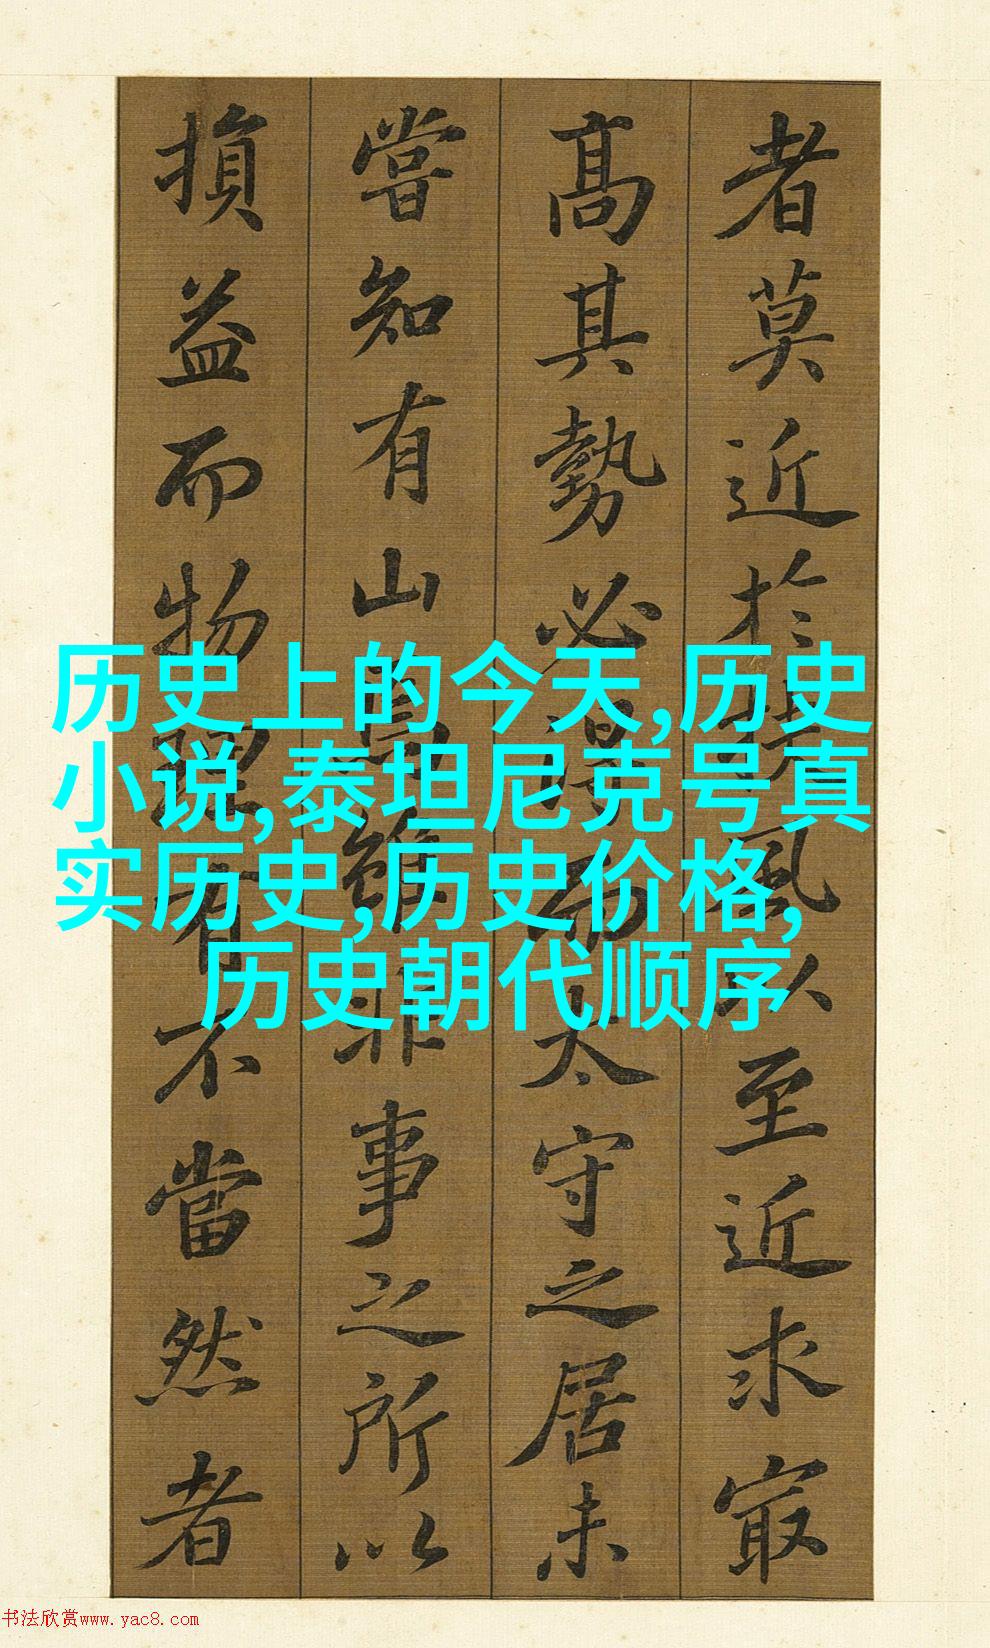 者莫近於扶風以至近求冣
高其勢必得而太守之居未
嘗知有山焉雖非事之所以
損益而物理有不當然者
历史上的今天,历史
小说,泰坦尼克号真
实历史,历史价格,
历史朝代顺序
书法欣赏www.yac8.com